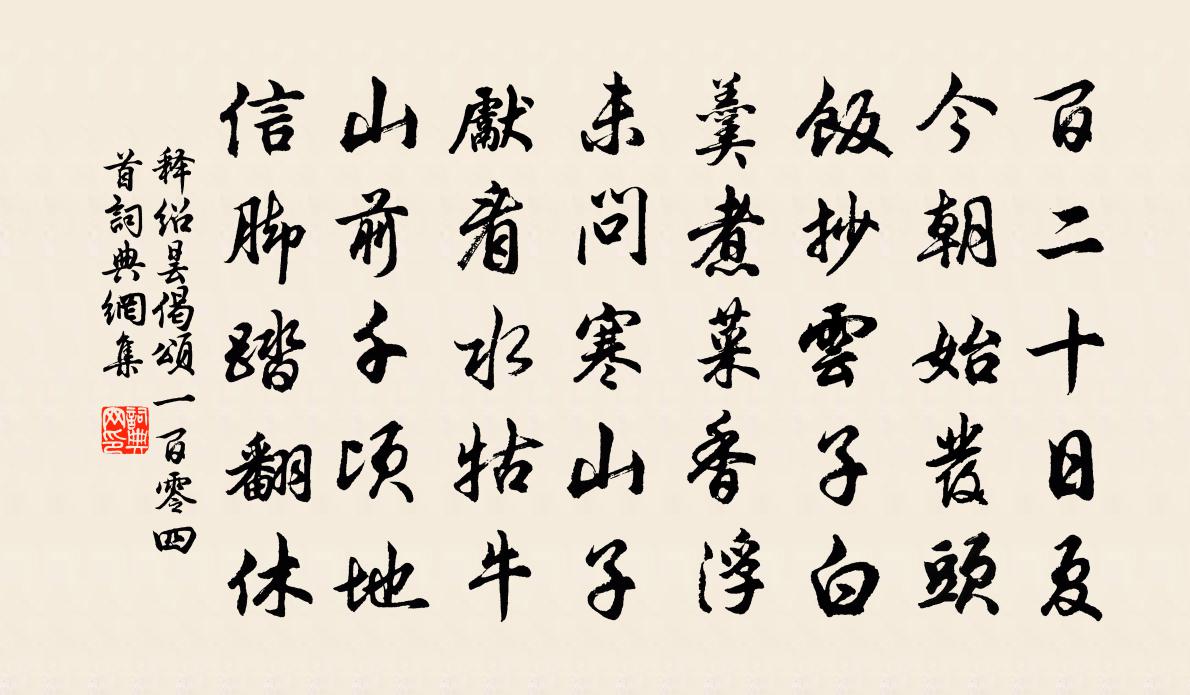 百二十日夏
今朝始發頭
飯抄雲子白
羹煮菜香浮
未問寒山子
獻看水牯牛
山前千頃地
信脚踏翻休
释紹昙偈頌一百零四
首詞典網集
詞典
网印